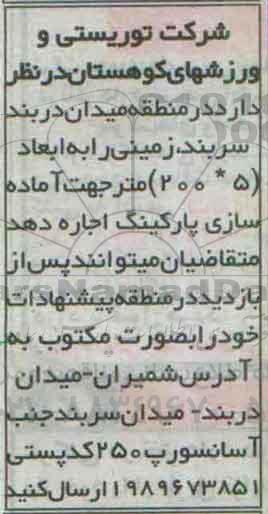 شرکت توریستی و
ورزشهای کوهستان در نظر
دارد در منطقه میدان دربند
سربند، زمینی را به ابعاد
(۵ * ۲۰۰) متر جهت آماده
سازی پارکینگ اجاره دهد
متقاضیان میتوانند پس از
بازدید در منطقه پیشنهادات
خود را بصورت مکتوب به
آدرس شمیران-میدان
دربند- میدان سربند جنب
آسانسور پ ۲۵۰ کدپستی
۱۹۸۹۶۷۳۸۵۱ ارسال کنید